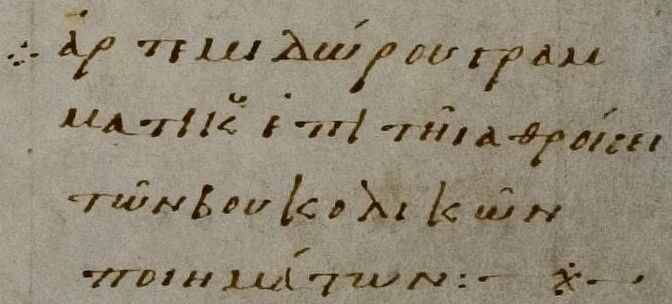 ἀρτεμιδώρου γραμ
ματικοῦ ἐπὶ τῆι ἀθροίσει
τῶν βουκολικῶν
ποιημάτων:-